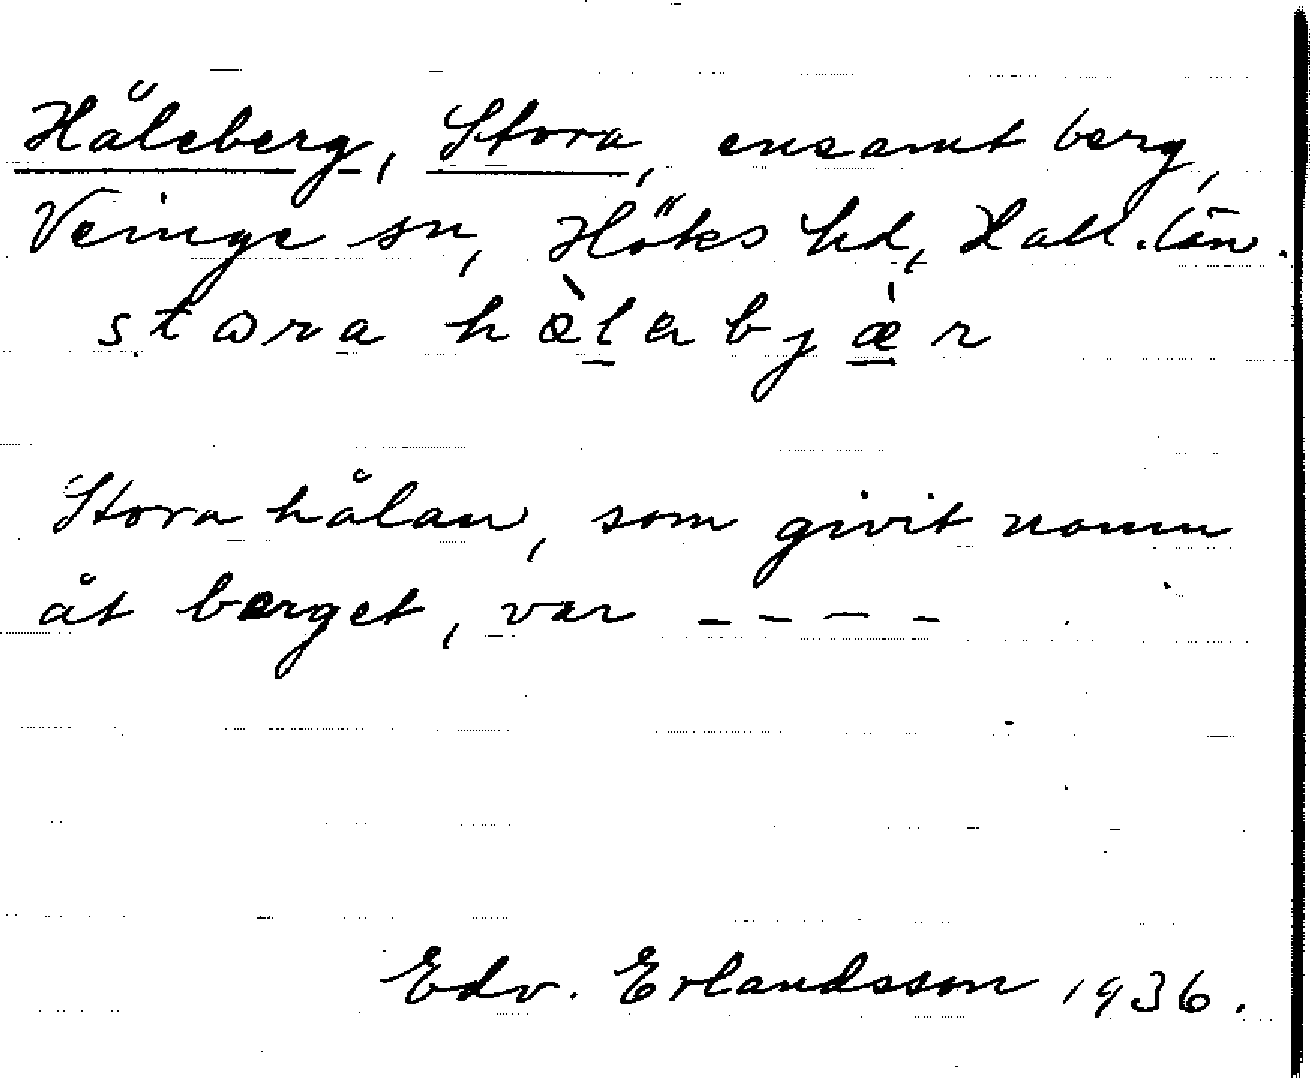 Håleberg, Stora, ensamt berg,
Veinge sn, Höks hd, Hall. län.
stɷra hæ̀labjæ̀r
Stora hålan, som givit namn
åt berget, var - - - -
Edv. Erlandsson 1936.